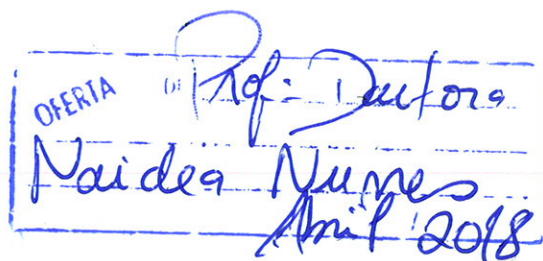 OFERTA DE Prof.ª Doutora
Naidea Nunes
Abril 2018